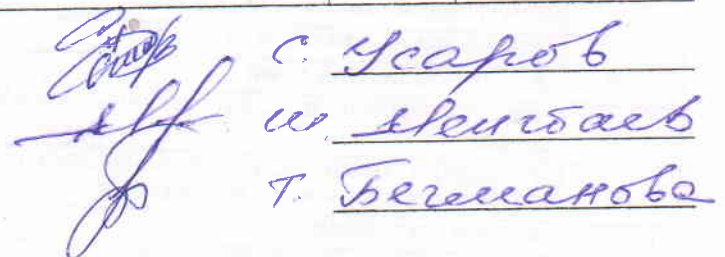 С. Усаров
Ш. Менгбаев
Т. Бегманова